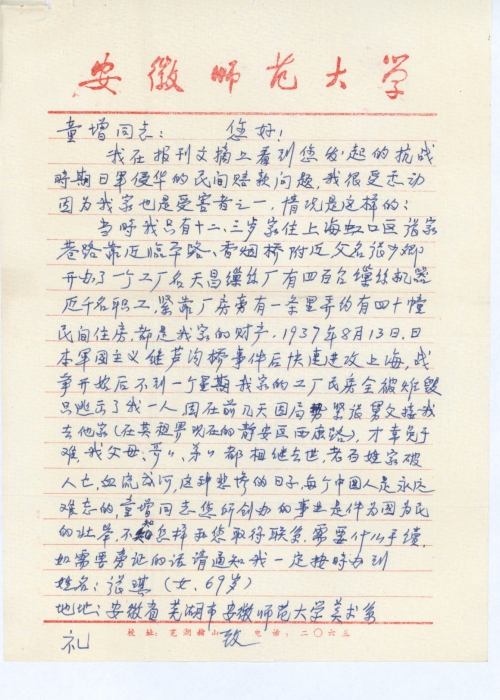 安徽师范大学
童增同志： 您好！
我在报刊文摘上看到您发起的抗战
时期日军侵华的民间赔款问题，我很受感动
因为我家也是受害者之一，情况是这样的：
当时我只有十二、三岁家住上海虹口区张家
巷路靠近临平路、香烟桥附近父名张少卿
开办了一个工厂名天昌缫丝厂有四百台缫丝机器
近千名职工，紧靠厂房旁有一条里弄约有四十幢
民间住房，都是我家的财产，1937年8月13日，日
本军国主义继芦沟桥事件后快速进攻上海，战
争开始后不到一个星期我家的工厂民房全被炸毁
只逃出了我一人因在前几天因局势紧张舅父接我
去他家（在英租界现在的静安区西康路），才幸免于
难，我父母、哥〃、弟〃都相继去世，老百姓家破
人亡，血流成河，这种悲惨的日子，每个中国人是永远
难忘的，童增同志您所创办的事业是件为国为民
的壮举，不知怎样和您取得联系，需要什么手续，
如需要旁证的话请通知我一定按时办到
姓名：张琪（女，69岁）
地址：安徽省芜湖市安徽师范大学美术系
校址：芜湖赭山 电话：二〇六三
致
礼